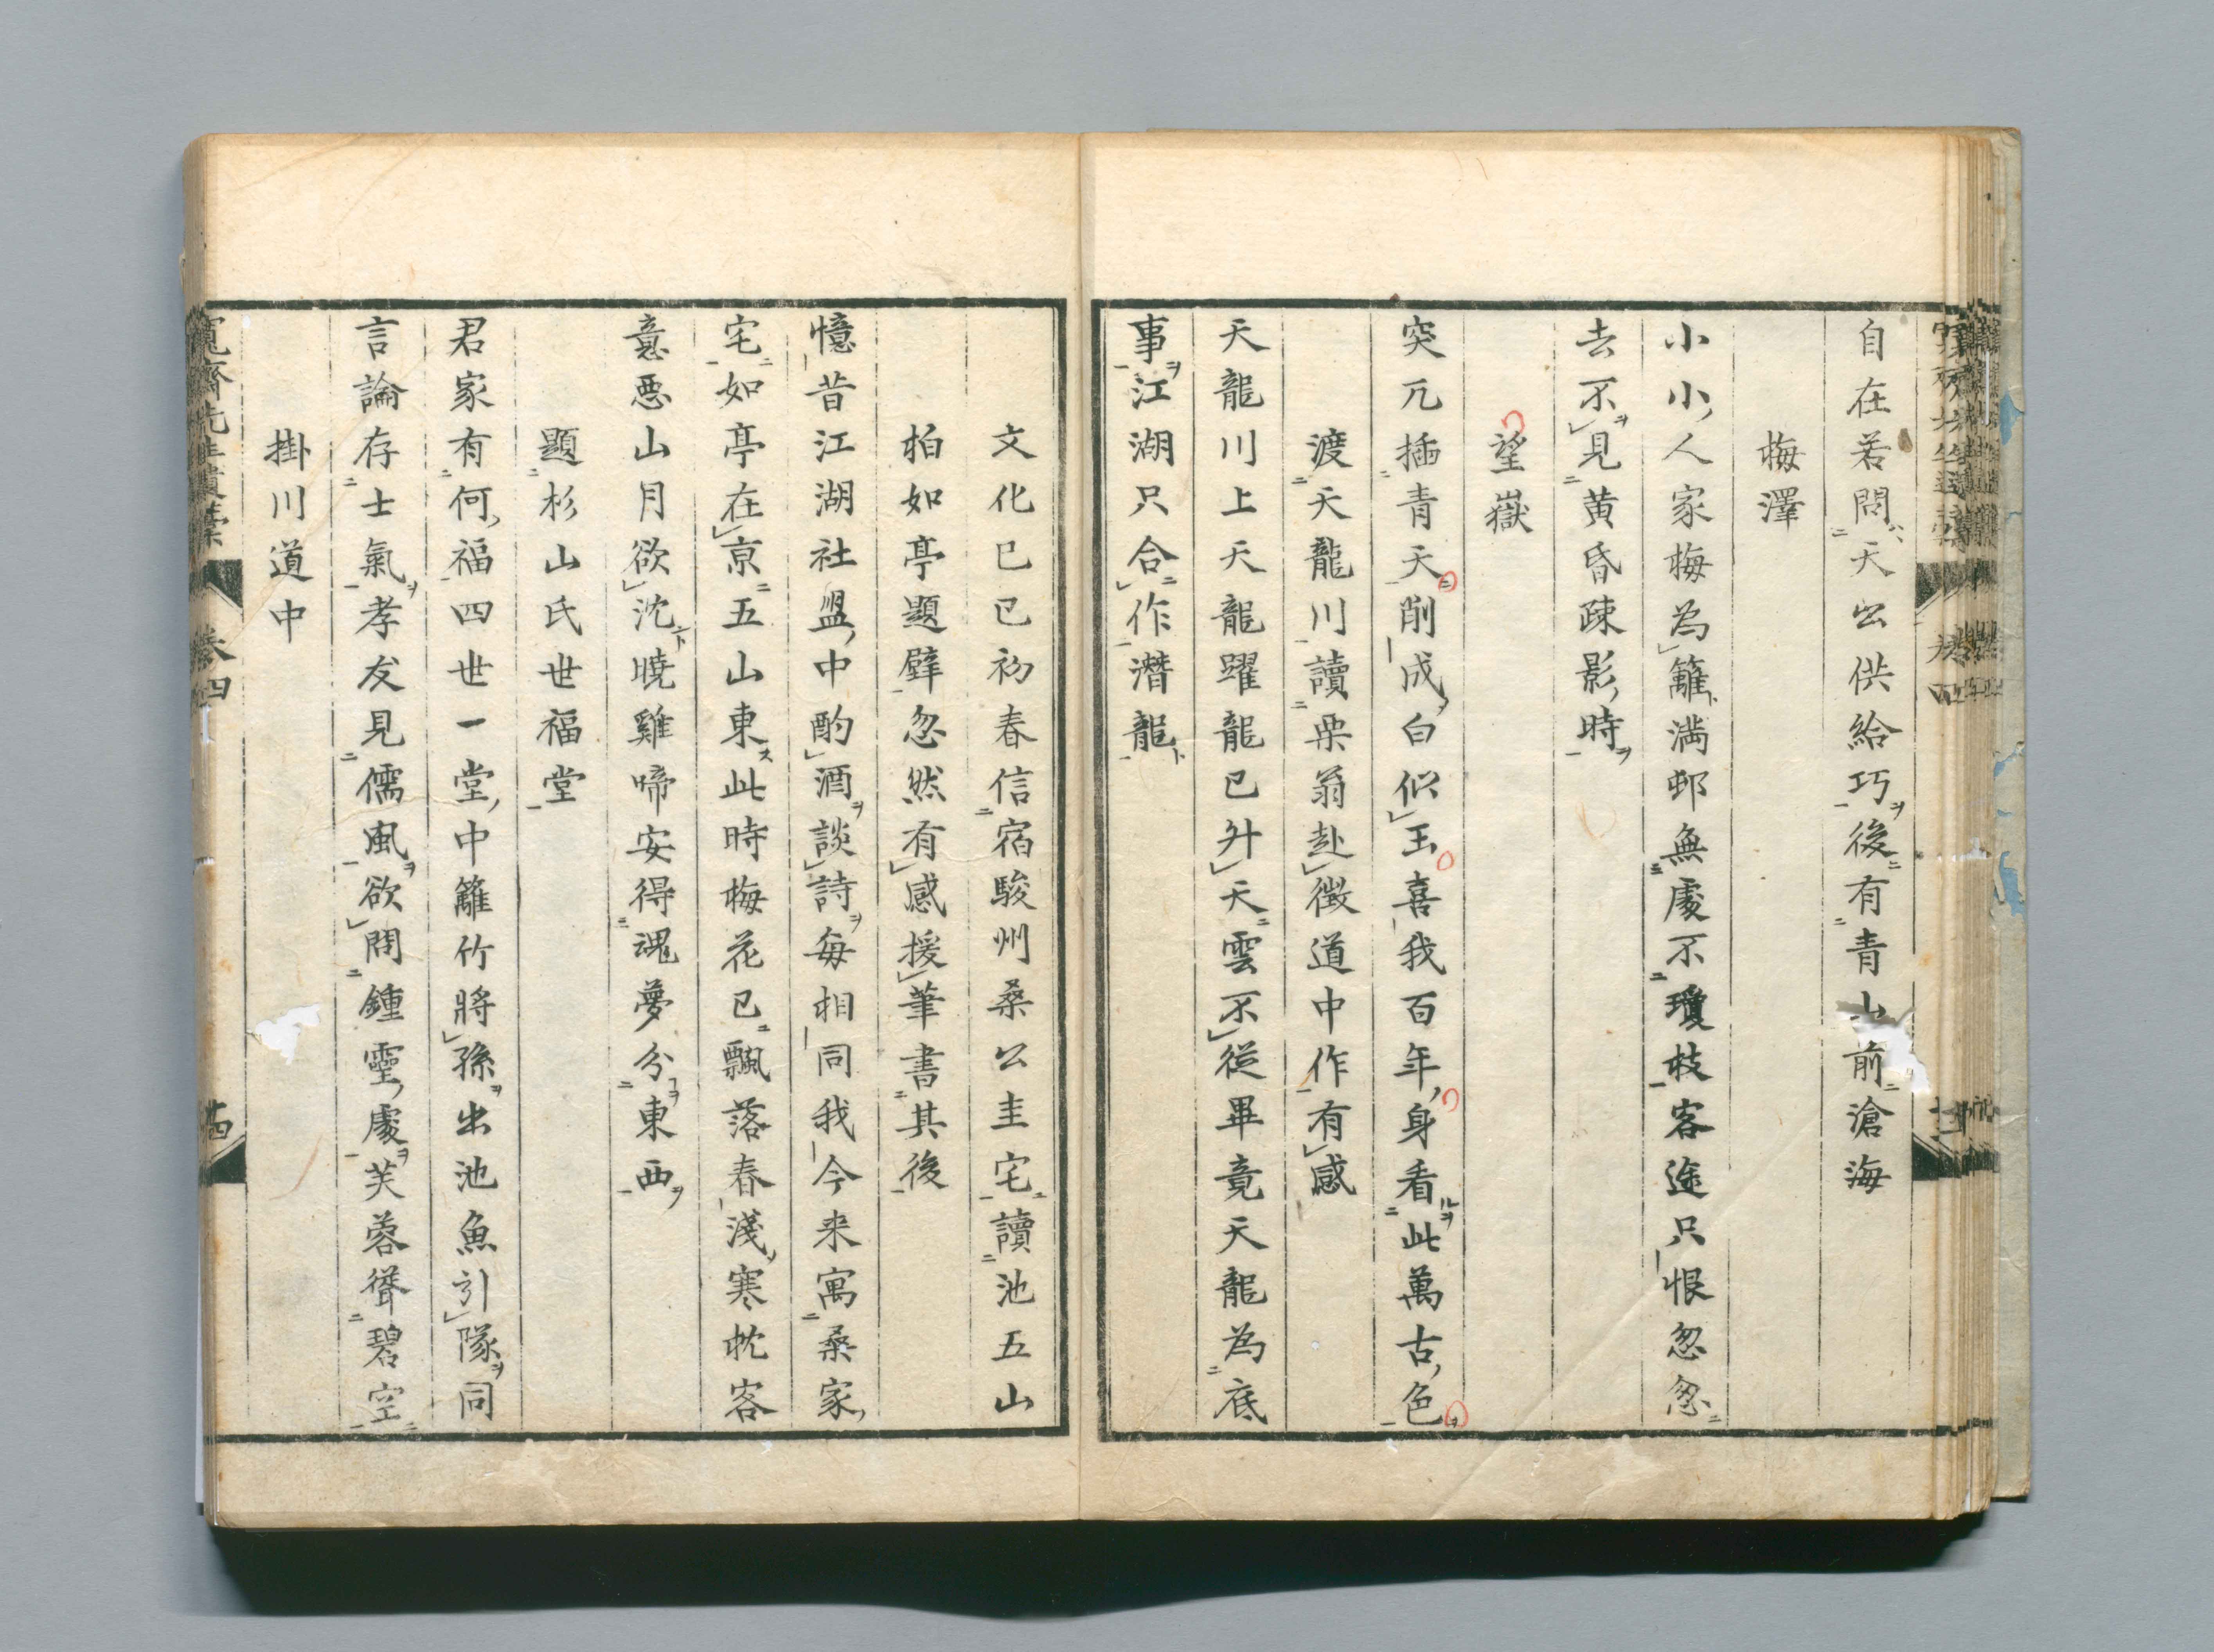 自在若問天公供給巧後有青山前滄海
梅澤
小小人家梅為籬満邨無處不瓊枝客途只恨忽忽
去不見黄昏疎影時
望嶽
突兀插青天削成白似玉喜我百年身看此萬古色
渡天龍川讀栗翁赴徴道中作有感
天龍川上天龍躍龍已升天雲不従畢竟天龍為底
事江湖只合作潛龍
文化已已初春信宿駿州桑公圭宅讀池五山
柏如亭題壁忽然有感援筆書其後
憶昔江湖社盟中酌酒談詩毎相同我今来寓桑家
宅如亭在京五山東此時梅花已飄落春淺寒枕客
意悪山月欲沈曉雞啼安得魂夢分東西
題杉山氏世福堂
君家有何福四世一堂中籬竹將孫出池魚引隊同
言論存士氣孝友見儒風欲問鍾靈處芙蓉聳碧空
掛川道中
寛齋先生遺稾 巻四 十四